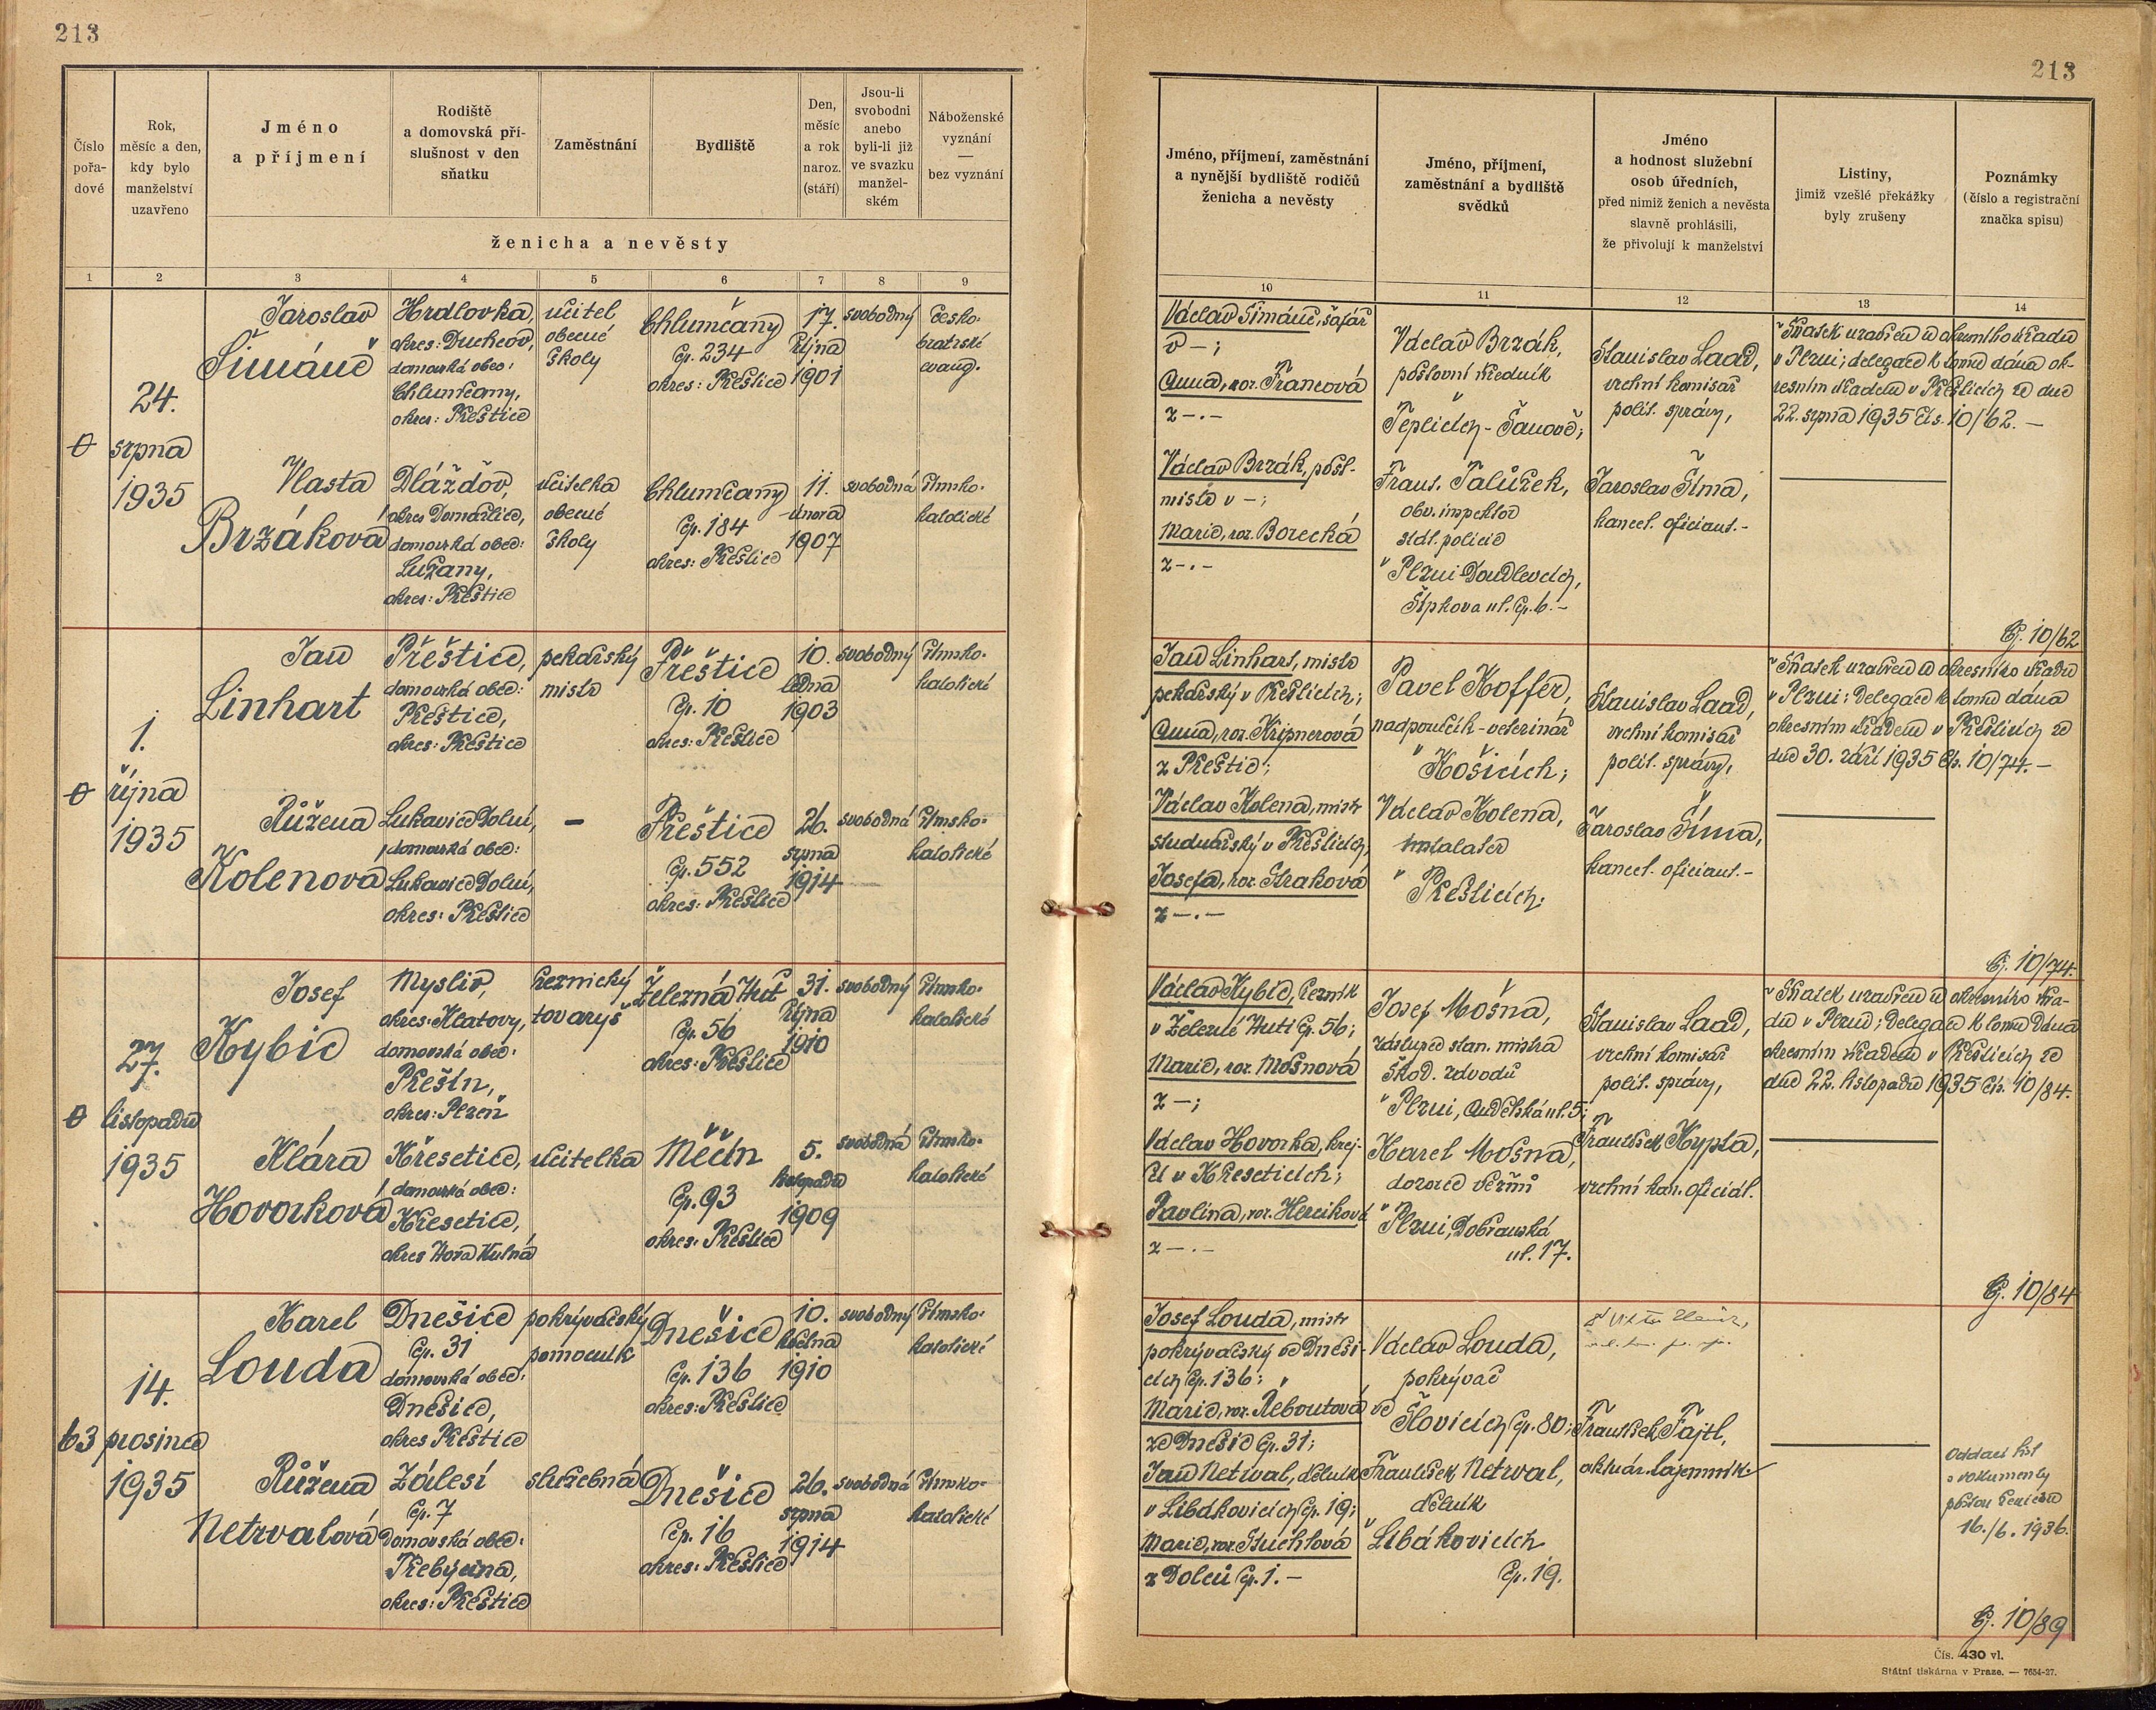 213
213
Číslo pořa-dové
Rok, měsíc a den, kdy bylo manželství uzavřeno
Jméno a příjmení
Rodiště a domovská pří-slušnost v den sňatku
Zaměstnání
Bydliště
Den, měsíc a rok naroz. (stáří)
Jsou-li svobodni anebo byli-li již ve svazku manžel-ském
Náboženské vyznání — bez vyznání
ženicha a nevěsty
1 2 3 4 5 6 7 8 9
Jméno, příjmení, zaměstnání a nynější bydliště rodičů ženicha a nevěsty
Jméno, příjmení, zaměstnání a bydliště svědků
Jméno a hodnost služební osob úředních, před nimiž ženich a nevěsta slavně prohlásili, že přivolují k manželství
Listiny, jimiž vzešlé překážky byly zrušeny
Poznámky (číslo a registrační značka spisu)
10 11 12 13 14
0
24.
srpna
1935
Jaroslav
Šimáně
Hrdlovka,
okres: Duchcov,
domovská obec:
Chlumčany,
okres: Přeštice
učitel
obecné
školy
Chlumčany
čp. 234
okres: Přeštice
17.
října
1901
svobodný
česko-
bratrské
evang.
Vlasta
Brzáková
Dlážďov,
okres Domažlice,
domovská obec:
Lužany,
okres: Přeštice
učitelka
obecné
školy
Chlumčany
čp. 184
okres: Přeštice
11.
února
1907
svobodná
římsko-
katolické
Václav Šimáně, šafář
v -;
Anna, roz. Francová
z -.-
Václav Brzák, pošt-
mistr v -;
Marie, roz. Borecká
z -.-
Václav Brzák,
poštovní úředník
v
Teplicích-Šanově;
Frant. Palůzek,
obv. inspektor
stát. policie
v Plzni-Doudlevcích,
Šípkova ul. čp. 6.-
Stanislav Laad,
vrchní komisař
polit. správy,
Jaroslav Šíma,
kancel. oficiant.-
Sňatek uzavřen u okresního úřadu
v Plzni; delegace k tomu dána ok-
resním úřadem v Přešticích ze dne
22. srpna 1935 čís. 10/62.-
Čj. 10/62
0
1.
října
1935
Jan
Linhart
Přeštice,
domovská obec:
Přeštice,
okres: Přeštice
pekařský
mistr
Přeštice
čp. 10
okres: Přeštice
10.
ledna
1903
svobodný
římsko-
katolické
Růžena
Kolenová
Lukavice Dolní,
domovská obec:
Lukavice Dolní,
okres: Přeštice
-
Přeštice
čp. 552
okres: Přeštice
26.
srpna
1914
svobodná
římsko-
katolické
Jan Linhart, mistr
pekařský v Přešticích;
Anna, roz. Kripnerová
z Přeštic;
Václav Kolena, mistr
studnařský v Přešticích,
Josefa, roz. Straková
z -.-
Pavel Hoffer,
nadporučík-veterinář
v
Košicích;
Václav Kolena,
instalatér
v
Přešticích.
Stanislav Laad,
vrchní komisař
polit. správy,
Jaroslav Šíma,
kancel. oficiant.-
Sňatek uzavřen u okresního úřadu
v Plzni; delegace k tomu dána
okresním úřadem v Přešticích ze
dne 30. září 1935 čís. 10/74.-
Čj. 10/74.
0
27.
listopadu
1935
Josef
Kybic
Myslív,
okres: Klatovy,
domovská obec:
Přeštín,
okres: Plzeň
řeznický
tovaryš
Železná Huť
čp. 56
okres: Přeštice
31.
října
1910
svobodný
římsko-
katolické
Klára
Hovorková
Křesetice,
domovská obec:
Křesetice,
okres Hora Kutná
učitelka
Měčín
čp. 93
okres: Přeštice
5.
listopadu
1909
svobodná
římsko-
katolické
Václav Kybic, řezník
v Železné Huti čp. 56;
Marie, roz. Mošnová
z -;
Václav Hovorka, krej-
čí v Křeseticích;
Pavlina, roz. Hercíková
z -.-
Josef Mošna,
zástupce stan. mistra
Škod. závodů
v Plzni, Andělská ul. 5;
Karel Mošna,
dozorce věžňů
v
Plzni, Dobřanská
ul. 17.
Stanislav Laad,
vrchní komisař
polit. správy,
František Kypta,
vrchní kan. oficiál.
Sňatek uzavřen u okresního úřa-
du v Plzni; delegace k tomu dána
okresním úřadem v Přešticích ze
dne 22. listopadu 1935 čís. 10/84.
Čj. 10/84
63
14.
prosince
1935
Karel
Louda
Dnešice
čp. 31
domovská obec:
Dnešice,
okres Přeštice
pokrývačský
pomocník
Dnešice
čp. 136
okres: Přeštice
10.
května
1910
svobodný
římsko-
katolické
Růžena
Netrvalová
Zálesí
čp. 7
domovská obec:
Třebýcina,
okres: Přeštice
služebná
Dnešice
čp. 16
okres: Přeštice
26.
srpna
1914
svobodná
římsko-
katolické
Josef Louda, mistr
pokrývačský ve Dneši-
cích čp. 136;
Marie, roz. Reboutová
ze Dnešic čp. 31;
Jan Netrval, dělník
v Libákovicích čp. 19;
Marie, roz. Suchlová
z Dolců čp. 1.-
Václav Louda,
pokrývač
ve
Šlovicích čp. 80;
František Netrval,
dělník
v
Libákovicích
čp. 19.
František Fajtl,
aktuár. tajemník.
Oddací list
s dokumenty
16./6. 1936.
Čj. 10/89
Čís. 430 vl.
Státní tiskárna v Praze. — 7654-27.